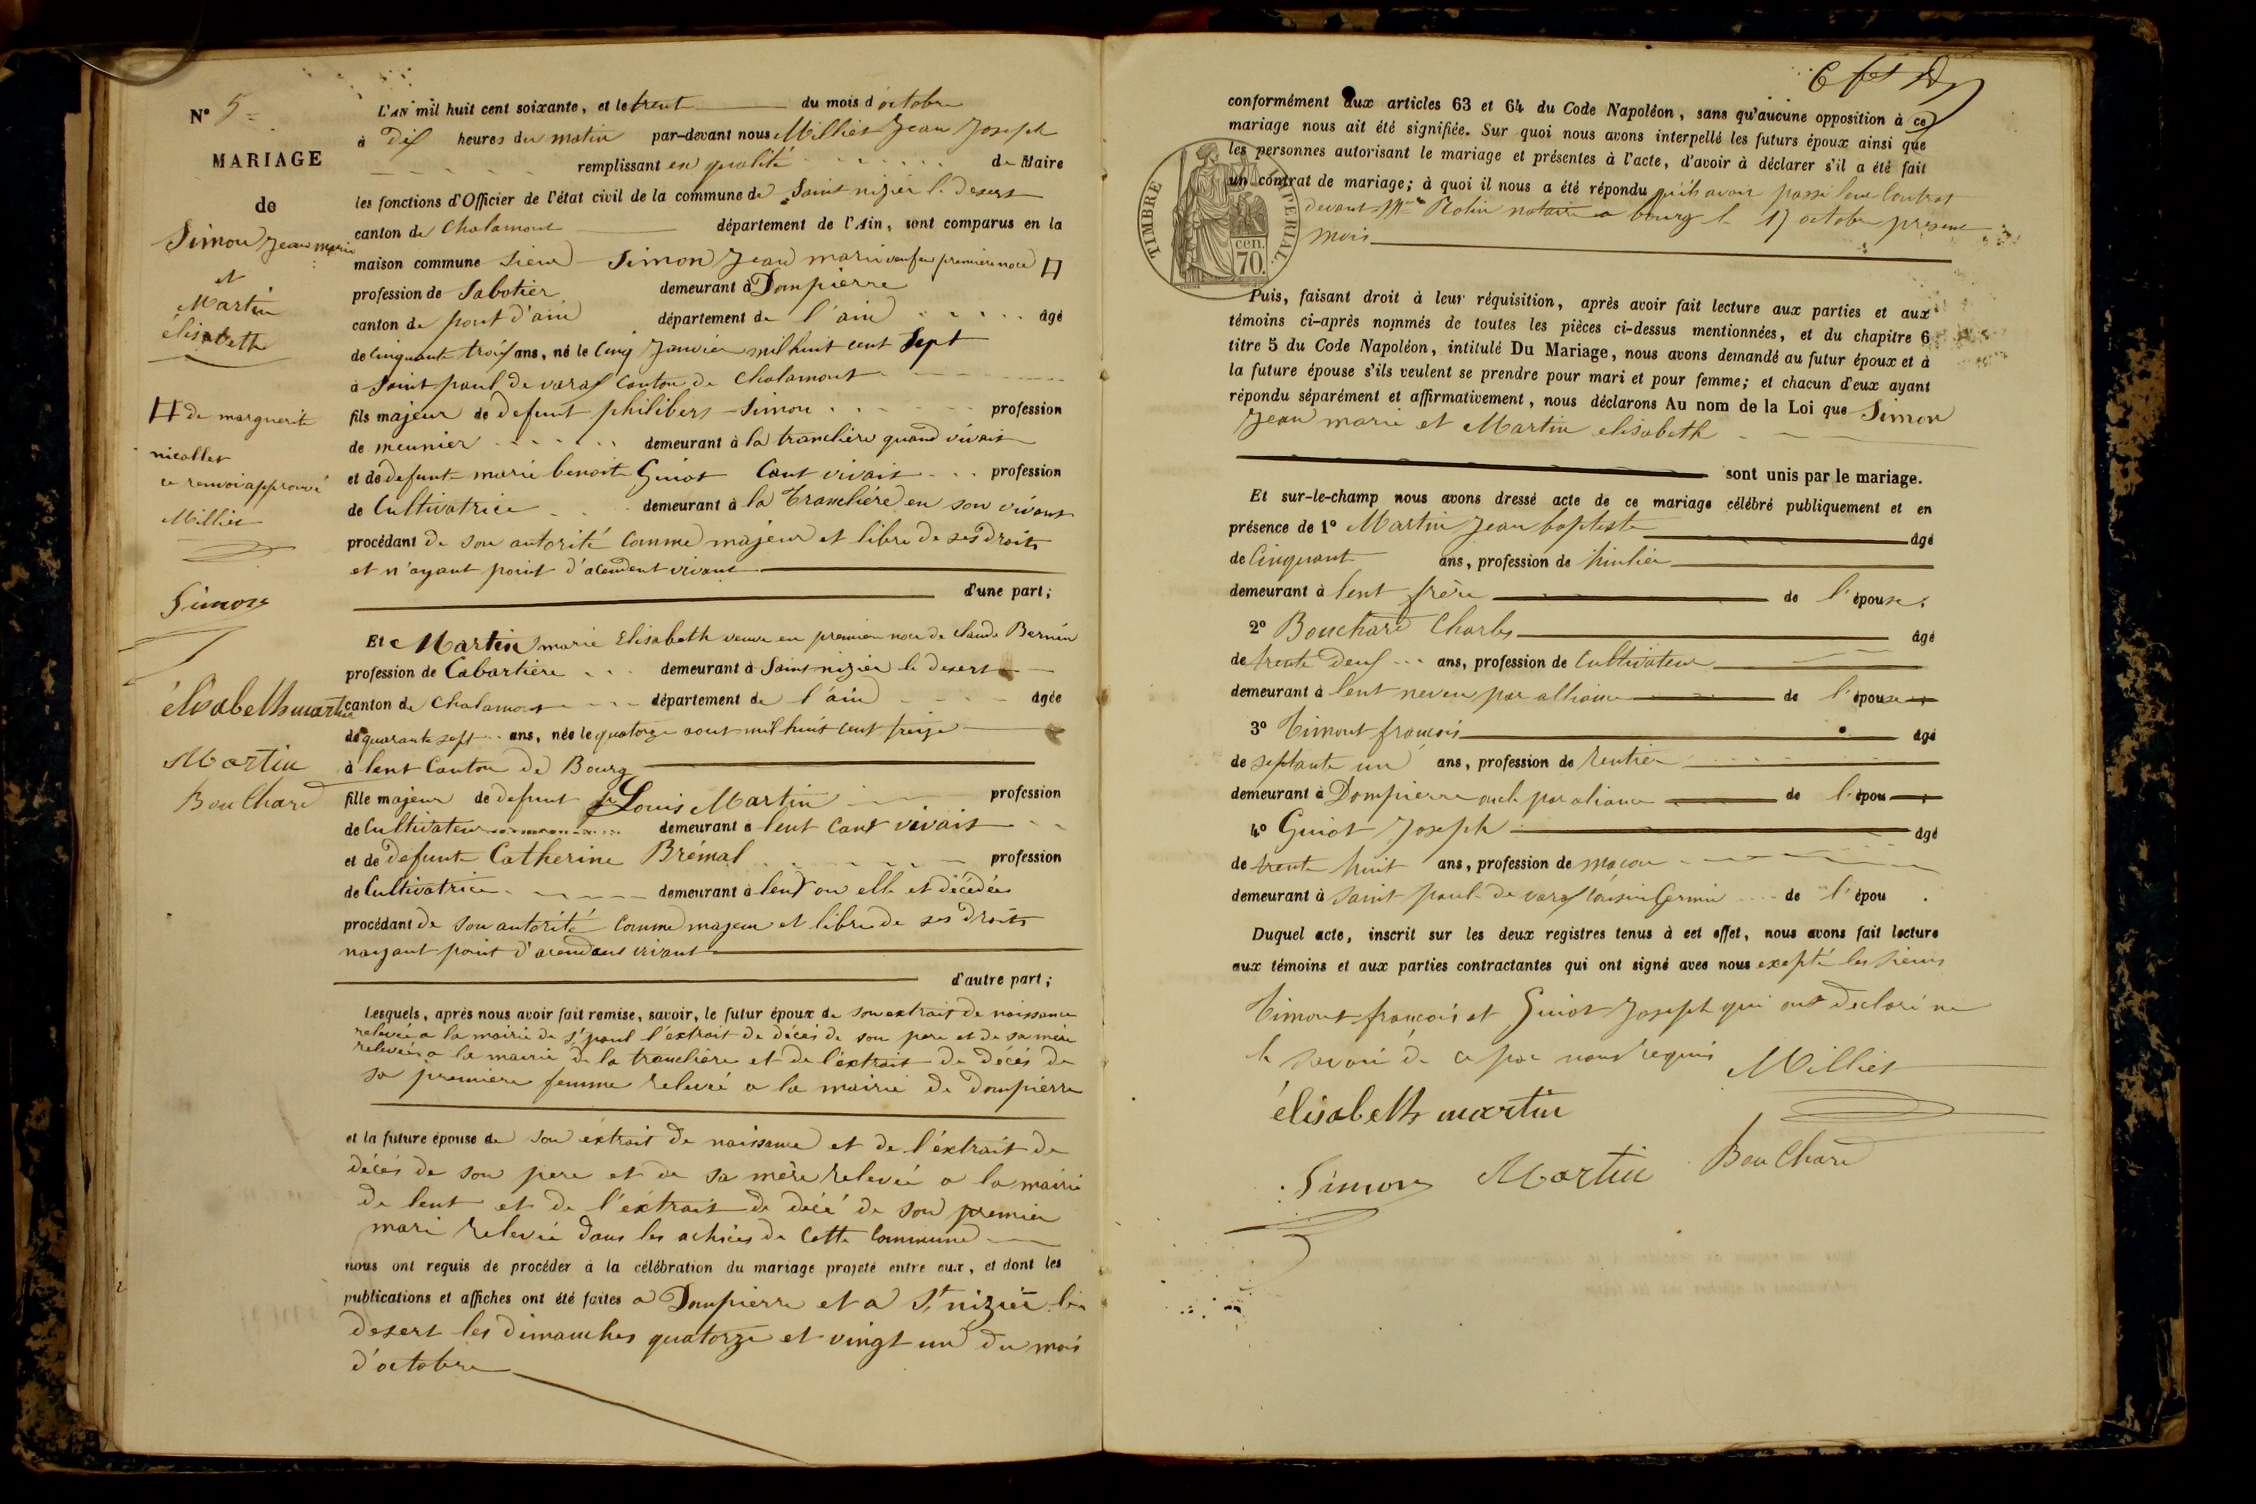 N° 5
MARIAGE
de
Simon Jean marie
et
Martin
élisabeth
H de marguerite
nicollet
ce renvoi approuvé
Millier
Simon
élisabeth martin
Martin
Bouchard
L'AN mil huit cent soixante, et le trent du mois d'octobre
à dix heures du matin par-devant nous Millier Jean Joseph
remplissant en qualité de Maire
les fonctions d'Officier de l'état civil de la commune de Saint nizier le desert
canton de Chalamont département de l'Ain, sont comparus en la
maison commune sieur Simon Jean marie veuf en premiere noce H
profession de Sabotier demeurant à Dompierre
canton de pont d'ain département de l'ain âgé
de cinquante trois ans, né le cinq Janvier mil huit cent Sept
à Saint paul de varax canton de Chalamont
fils majeur de defunt philibers Simon profession
de meunier demeurant à la tranclière quand vivait
et de defunte marie benoite Guiot Cant vivait profession
de Cultivatrice demeurant à la Tranclière en son vivant
procédant de son autorité comme majeur et libre de ses droits
et n'ayant point d'acendent vivant
d'une part;
Et Martin marie Elisabeth veuve en premier noce de claude Bernin
profession de Cabartière demeurant à Saint nizier le desert
canton de Chalamont département de l'ain âgée
de quarante sept ans, née le quatorze aout mil huit cent treize
à lent Canton de Bourg
fille majeur de defunt Louis Martin profession
de Cultivateur demeurant à lent Cant vivait
et de defunte Catherine Brémal profession
de Cultivatrice demeurant à lent ou elle et décédée
procédant de son autorité comme majeur et libre de ses droits
nayant point d'acendant vivant
d'autre part;
Lesquels, après nous avoir fait remise, savoir, le futur époux de son extrait de naissance
relevée a la mairie de St paul l'extrait de décès de son pere et de sa mère
relevées a la mairie de la tranclière et de l'éxtrait de décès de
sa première femme relevé a la mairie de dompierre
et la future épouse de son éxtrait de naissance et de l'éxtrait de
décés de son pere et de sa mère relevée a la mairie
de lent et de l'éxtrait de décé de son premier
mari relevée dans les achives de cette commune
nous ont requis de procéder à la célébration du mariage projeté entre eux, et dont les
publications et affiches ont été faites a Dompierre et a St nizier le
desert les dimanches quatorze et vingt un du mois
d'octobre
conformément aux articles 63 et 64 du Code Napoléon, sans qu'aucune opposition à ce
mariage nous ait été signifiée. Sur quoi nous avons interpellé les futurs époux ainsi que
les personnes autorisant le mariage et présentes à l'acte, d'avoir à déclarer s'il a été fait
un contrat de mariage; à quoi il nous a été répondu qu'ils avoir passé leur Contrat
devant Me Rolin notaire a bourg le 17 octobre present
mois
TIMBRE IMPERIAL
cen.
70.
Puis, faisant droit à leur réquisition, après avoir fait lecture aux parties et aux
témoins ci-après nommés de toutes les pièces ci-dessus mentionnées, et du chapitre 6
titre 5 du Code Napoléon, intitulé Du Mariage, nous avons demandé au futur époux et à
la future épouse s'ils veulent se prendre pour mari et pour femme; et chacun d'eux ayant
répondu séparément et affirmativement, nous déclarons Au nom de la Loi que Simon
Jean marie et Martin elisabeth
sont unis par le mariage.
Et sur-le-champ nous avons dressé acte de ce mariage célébré publiquement et en
présence de 1° Martin Jean baptiste âgé
de Cinquant ans, profession de
demeurant à lent frère de l'épouse.
2° Bouchard Charles âgé
de trente deux ans, profession de Cultivateur
demeurant à lent neveu par alliance de l'épouse
3° Timont françois âgé
de septante un ans, profession de Rentier
demeurant à Dompierre oncle par aliance de l'épou
4° Guiot Joseph âgé
de trente huit ans, profession de maçon
demeurant à Saint paul de varax Cousin Germin de l'épou .
Duquel acte, inscrit sur les deux registres tenus à cet effet, nous avons fait lecture
aux témoins et aux parties contractantes qui ont signé avec nous exepté les sieurs
Timont françois et Guiot Joseph qui ont declaré ne
le savoir de ce par nous requis Millier
élisabeth martin
Simon Martin Bouchard